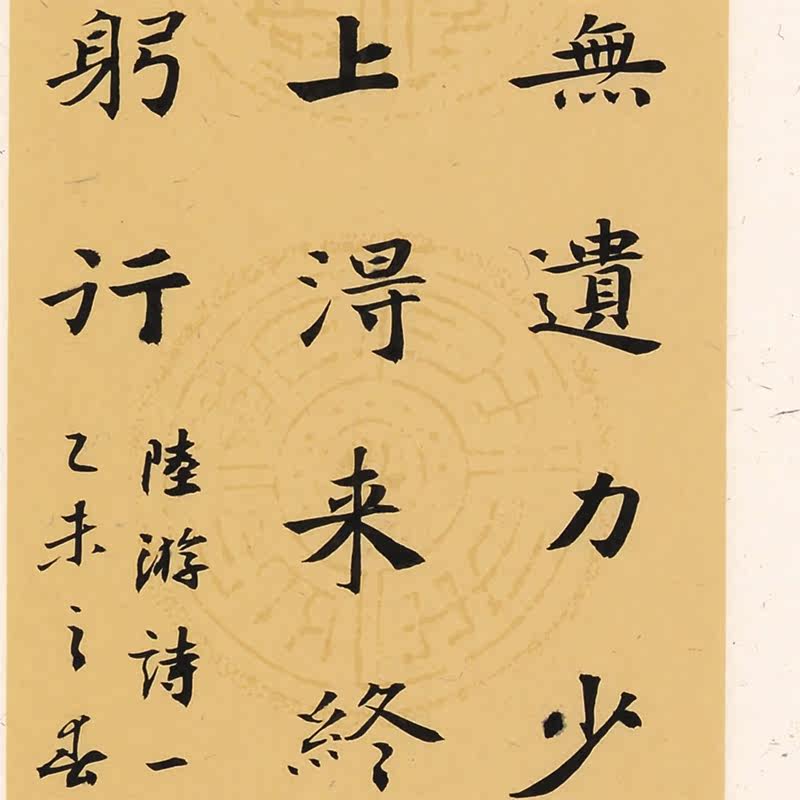 無遺力少
上得来終
躬行
陸游詩一
乙未之春